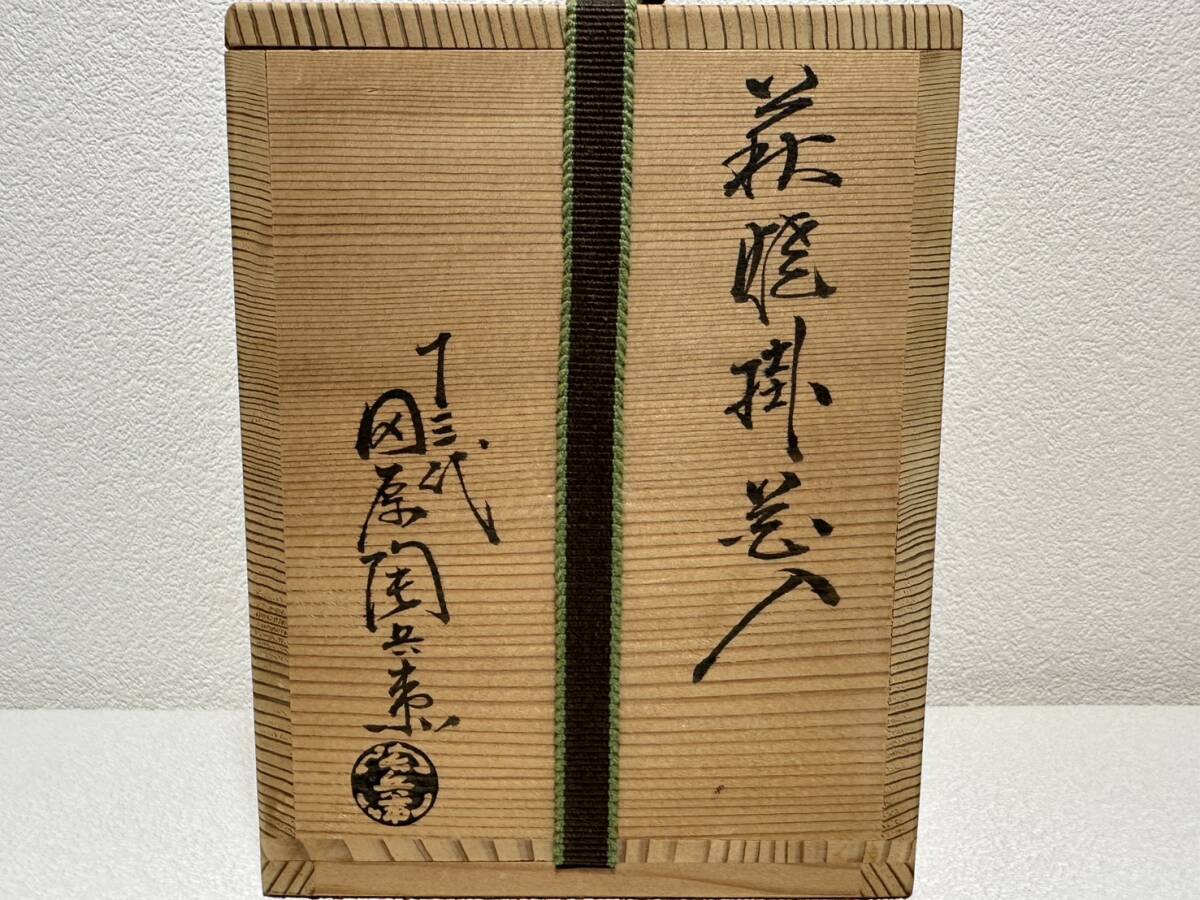 萩焼掛花入
十三代
田原陶兵衛